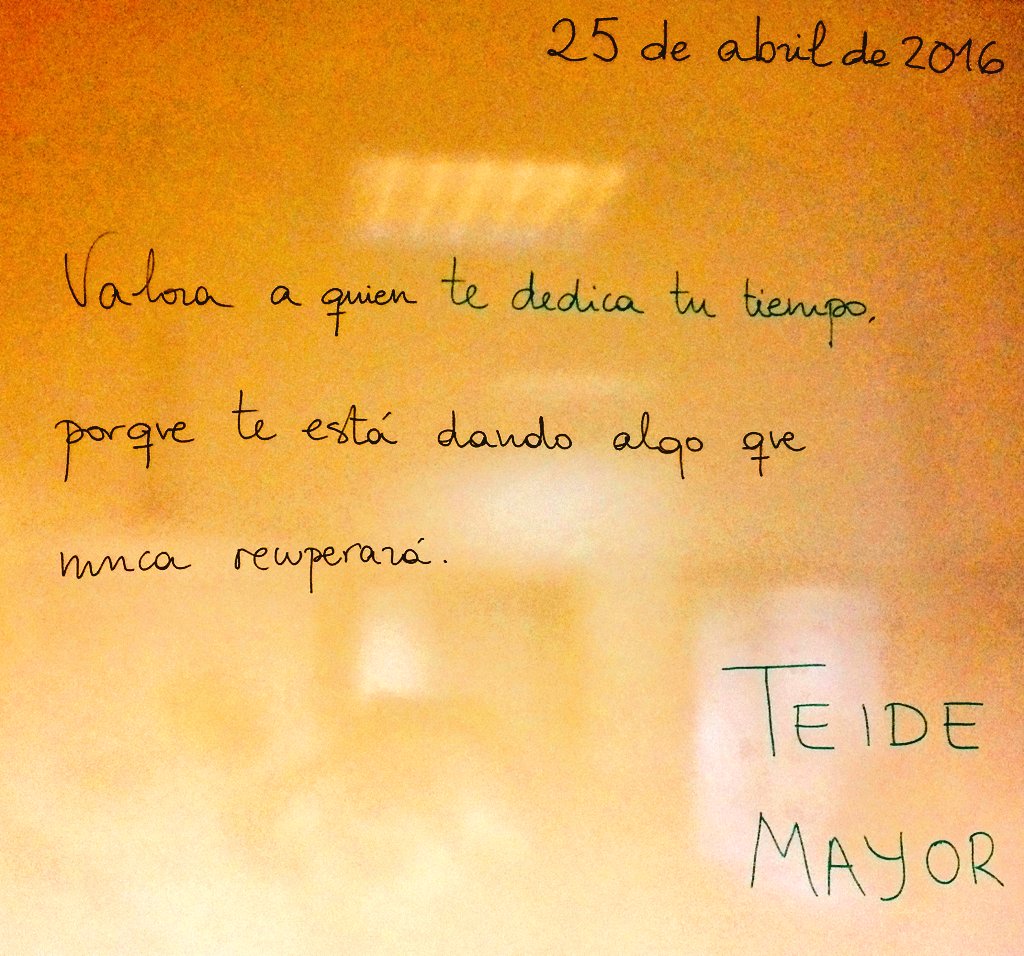 25 de abril de 2016
Valora a quien te dedica tu tiempo,
porque te está dando algo que
nunca recuperará.
TEIDE
MAYOR